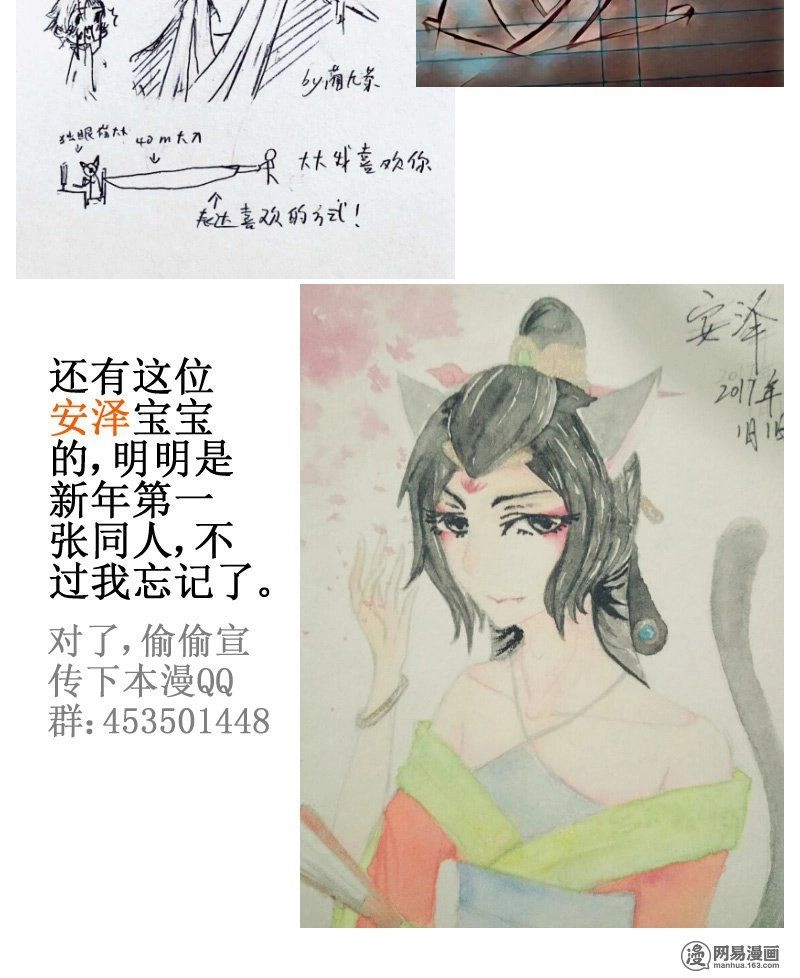 by萌九条
独眼怪大大
40m大刀
大大我喜欢你
表达喜欢的方式！
安泽
2017年
1月1日
还有这位
安泽宝宝
的,明明是
新年第一
张同人,不
过我忘记了。
对了,偷偷宣
传下本漫QQ
群:453501448
漫 网易漫画
manhua.163.com